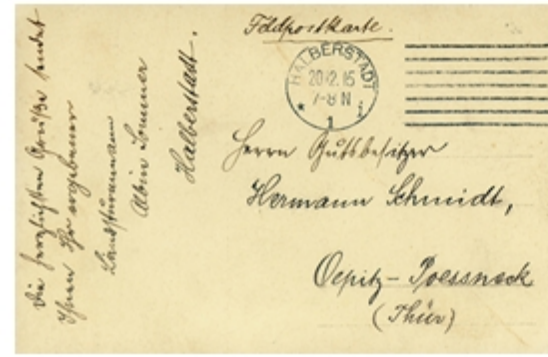 Feldpostkarte.
HALBERSTADT
20.12.15
7-8 N
* 1 i
Herrn Gutsbesitzer
Hermann Schmidt,
Oepitz - Poessneck
(Thür)
Die herzlichsten Grüße sendet
Ihnen Ihr ergebener
Landsturmmann
Albin Sommer
Halberstadt.